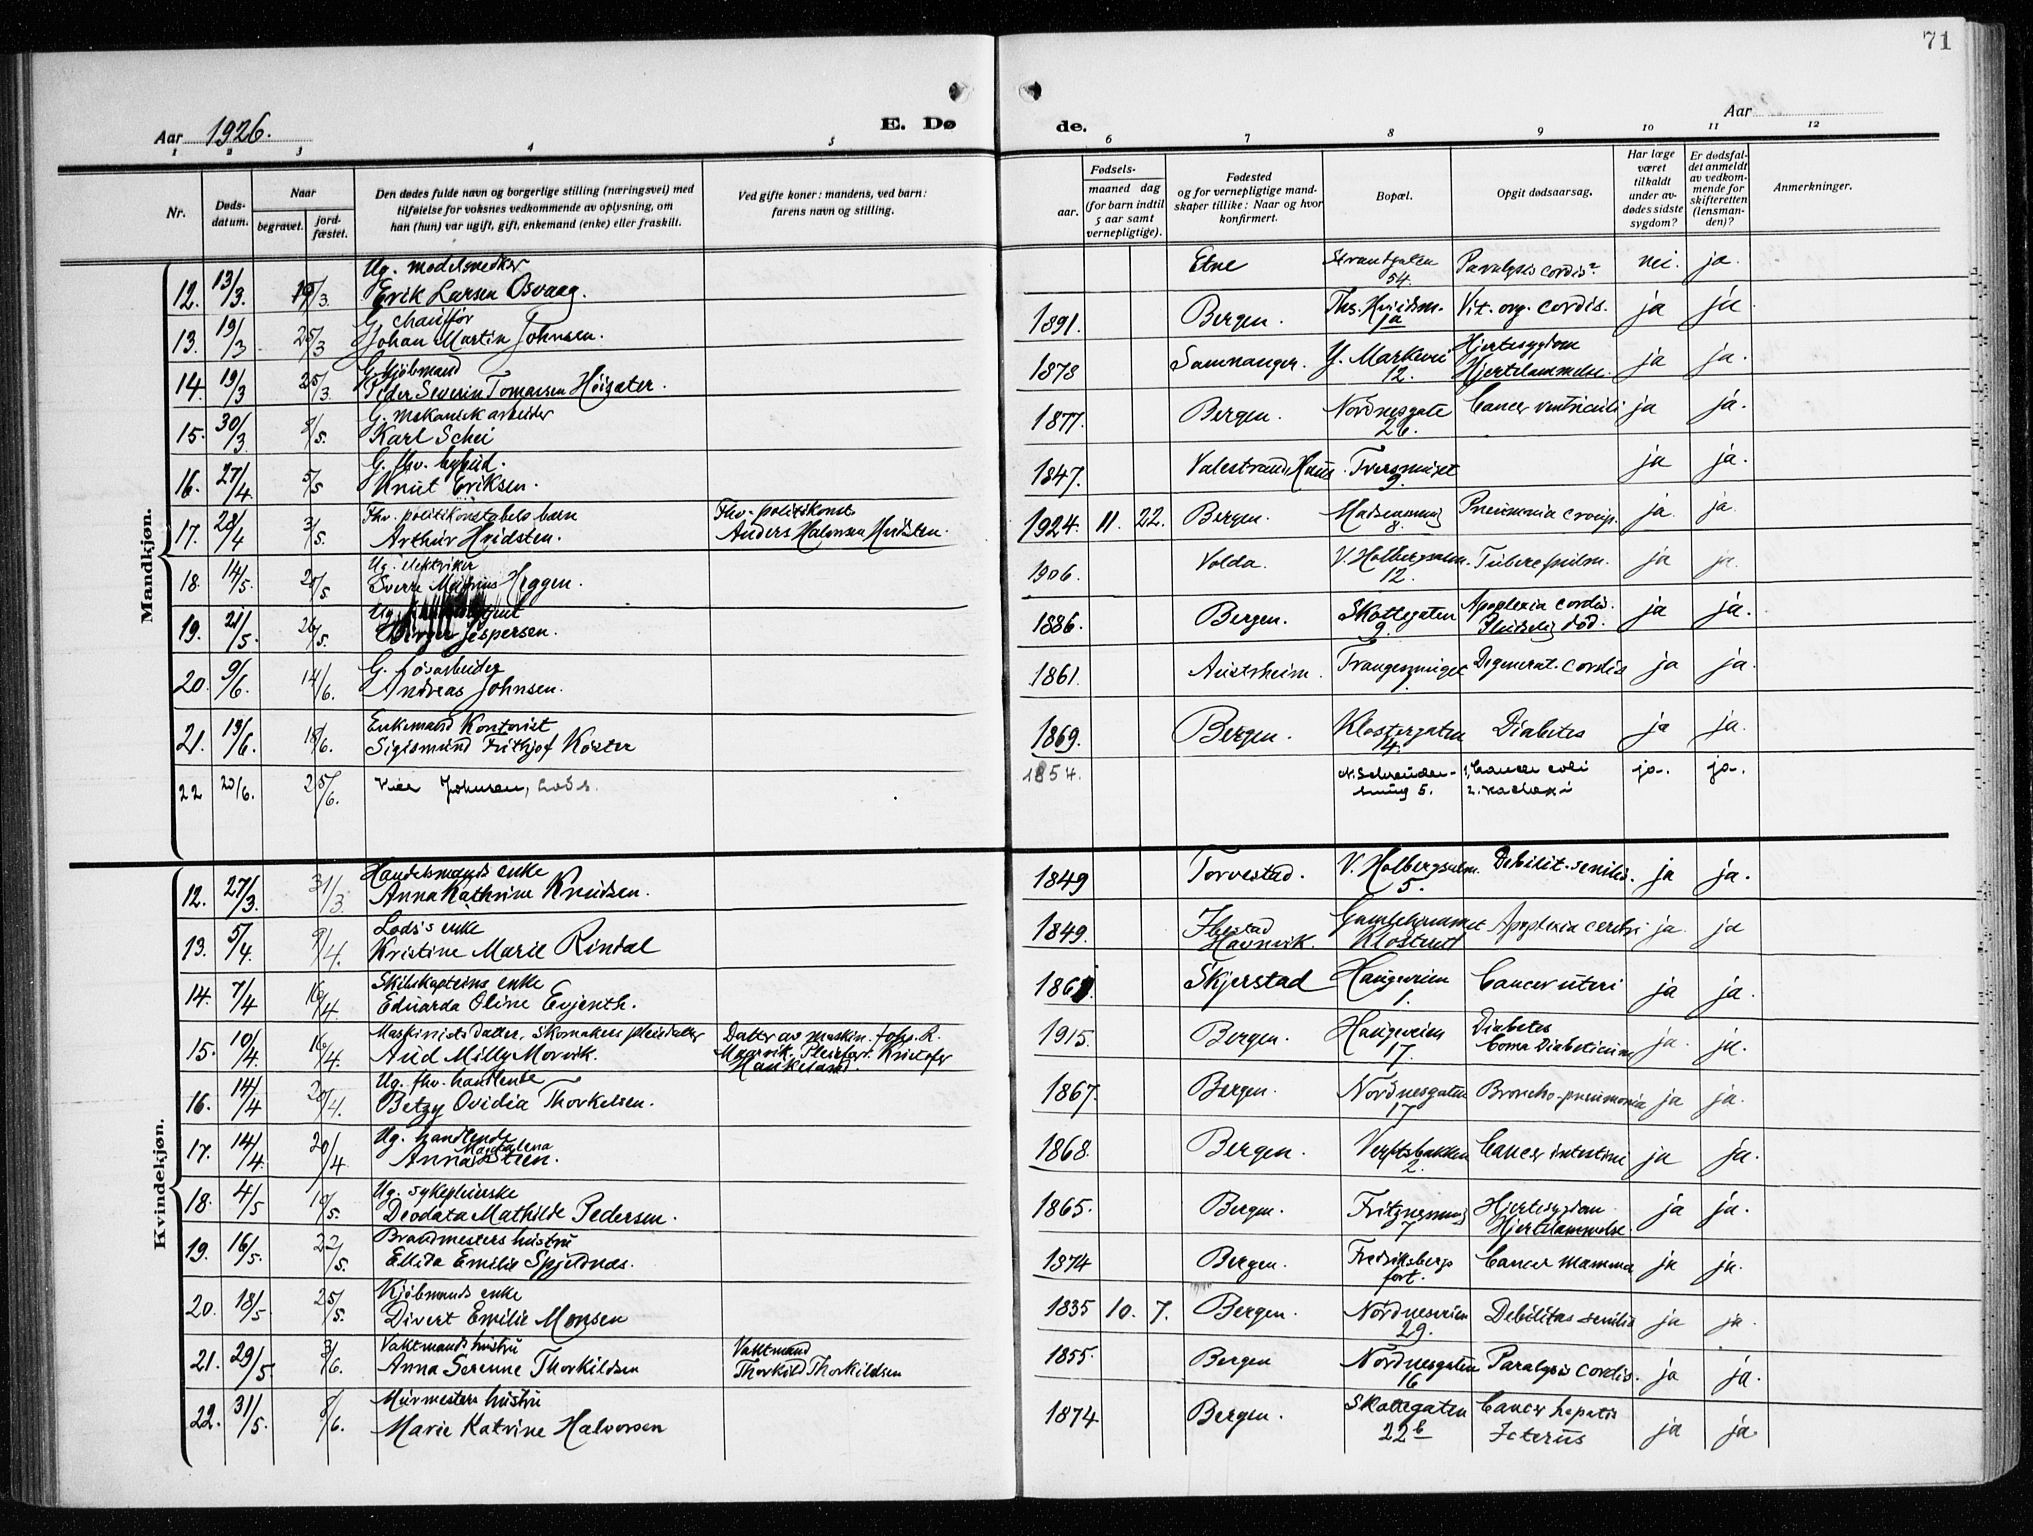 71
Aar 1926.
E. Dø
de.
Aar
1 2 3 4 5 6 7 8 9 10 11 12
Nr.
Døds-
datum.
Naar
begravet.
jord-
fæstet.
Den dødes fulde navn og borgerlige stilling (næringsvei) med
tilføielse for voksnes vedkommende av oplysning, om
han (hun) var ugift, gift, enkemand (enke) eller fraskilt.
Ved gifte koner: mandens, ved barn:
farens navn og stilling.
Fødsels-
aar.
maaned dag
(for barn indtil
5 aar samt
vernepligtige).
Fødested
og for vernepligtige mand-
skaper tillike: Naar og hvor
konfirmert.
Bopæl.
Opgit dødsaarsag.
Har læge
været
tilkaldt
under av-
dødes sidste
sygdom?
Er dødsfal-
det anmeldt
av vedkom-
mende for
skifteretten
(lensman-
den)?
Anmerkninger.
Mandkjøn.
Ug. modelsnedker
12. 13/3 Erik Larsen Osvaag. Etne Strandgaten 54. Paralysis cordis? nei. ja.
G. chauffør
13. 19/3 25/3 Johan Martin Johnsen. 1891. Bergen. 1a Vit. org. cordis. ja ja
G. kjøbmand
14. 19/3 25/3 Peder Severin Tomassen Høisæter. 1878 Samnanger. Y. Markevei 12. Hjertesygdom Hjertelammelse. ja ja.
G. mekanisk arbeider
15. 30/3 Karl Schei 1877. Bergen. Nordnesgate 26. Cancer ventriculi ja ja.
G. fhv.
16. 27/4 5/5 Knut Eriksen. 1847. Valestrand, Haus. 9. ja ja.
Fhv. politikonstabels barn Fhv. politikonst.
17. 28/4 3/5. Arthur Hvidsten. Anders Halvorsen Hvidsten. 1924. 11. 22. Bergen. 8. Pneumonia croup. ja. ja.
Ug. elektriker
18. 14/5. 20/5. Sverre Heggen. 1906. Volda. V. Holbergsalm. 12. Tuberc. pulm. ja ja.
Ug.
19. 21/5. 26/5. Birger Jespersen. 1886. Bergen. Skottegaten 9. Apoplexia cordis. Pludselig død. ja ja.
G. løsarbeider
20. 9/6. 14/6. Andreas Johnsen. 1861. Austrheim. Degenerat. cordis ja ja.
Enkemand Kontorist
21. 13/6. 18/6. Sigismund Frithjof Köster 1869. Bergen. Klostergaten 14. Diabetes ja ja.
22 20/6. 25/6. Johnsen, Lods. 1854. 5. 1, Cancer coli 2. Kachexi ja. ja.
Kvindekjøn.
Handelsmands enke
12. 27/3. 31/3. Anna Kathrine Knudsen. 1849 Torvestad. V. Holbergsalm. 5. Debilit. senilis. ja ja.
Lods's enke
13. 5/4. 9/4. Kristine Marie Rindal 1849. Ibestad Havnvik. Apoplexia cerebri ja. ja
Skibskapteins enke
14. 7/4 16/4 Eduarda Oline Evjenth. 1861. Skjerstad Haugeveien 1. Cancer uteri ja ja.
Maskinists datter, skomakers pleiedatter Datter av maskin. Johs. R.
15. 10/4. 16/4. Aud Milly Morvik. Morvik. Pleiefar: Kristofer Haukeland. 1915. Bergen. Haugeveien 17. Diabetes Coma Diabeticum ja. ja.
Ug. fhv. handlende
16. 14/4 20/4. Betzy Ovidia Thorkelsen. 1867. Bergen. Nordnesgaten 17 Broncho-pneumonia ja ja.
Ug. handlende
17. 14/4. 20/4 Anna Magdalena Steen. 1868. Bergen. Verftsbakken 2. Cancer intestini ja ja.
Ug. sykepleierske
18. 4/5 10/5. Deodata Mathilde Pedersen. 1865. Bergen. 7 Hjertesygdom Hjertelammelse ja ja.
Brandmesters hustru
19. 16/5. 22/5. Ellida Emilie Spjeldnæs. 1874 Bergen. Fredriksbergs fort. Cancer mamma ja ja.
Kjøbmands enke
20. 18/5. 25/5. Divert Emilie Monsen 1835 10. 7. Bergen. Nordnesveien 29. Debilitas senilis ja ja.
Vaktmands hustru Vaktmand
21. 29/5. 3/6. Anna Serenne Thorkildsen Thorkild Thorkildsen 1855. Bergen Nordnesgaten 16 Paralysis cordis. ja ja.
Murmesters hustru
22. 31/5. 8/6. Marie Katrine Halvorsen 1874 Bergen. Skottegaten 22b Cancer hepatis Icterus ja ja.